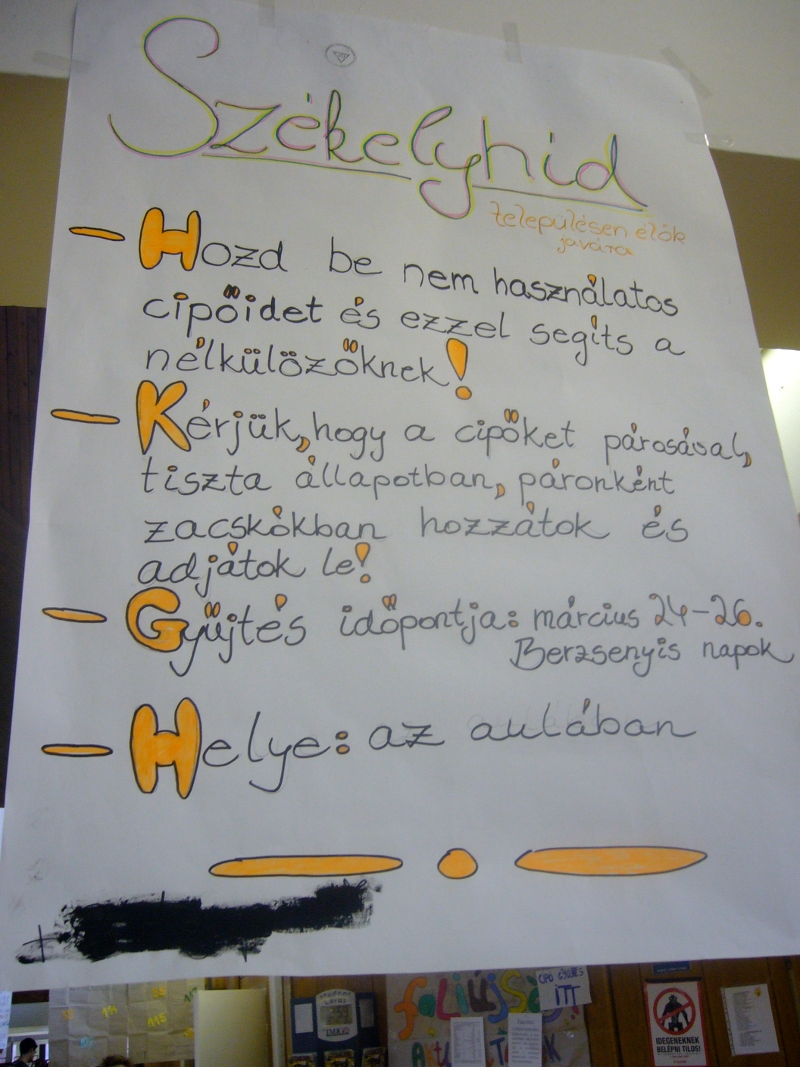 Székelyhid
településen élők
javára
– Hozd be nem használatos
cipőidet és ezzel segíts a
nélkülözőknek!
– Kérjük, hogy a cipőket párosával,
tiszta állapotban, páronként
zacskókban hozzátok és
adjátok le!
– Gyűjtés időpontja: március 24-26.
Berzsenyis napok
– Helye: az aulában
faliújság
CIPŐ GYŰJTÉS
ITT
IDEGENEKNEK
BELÉPNI TILOS!